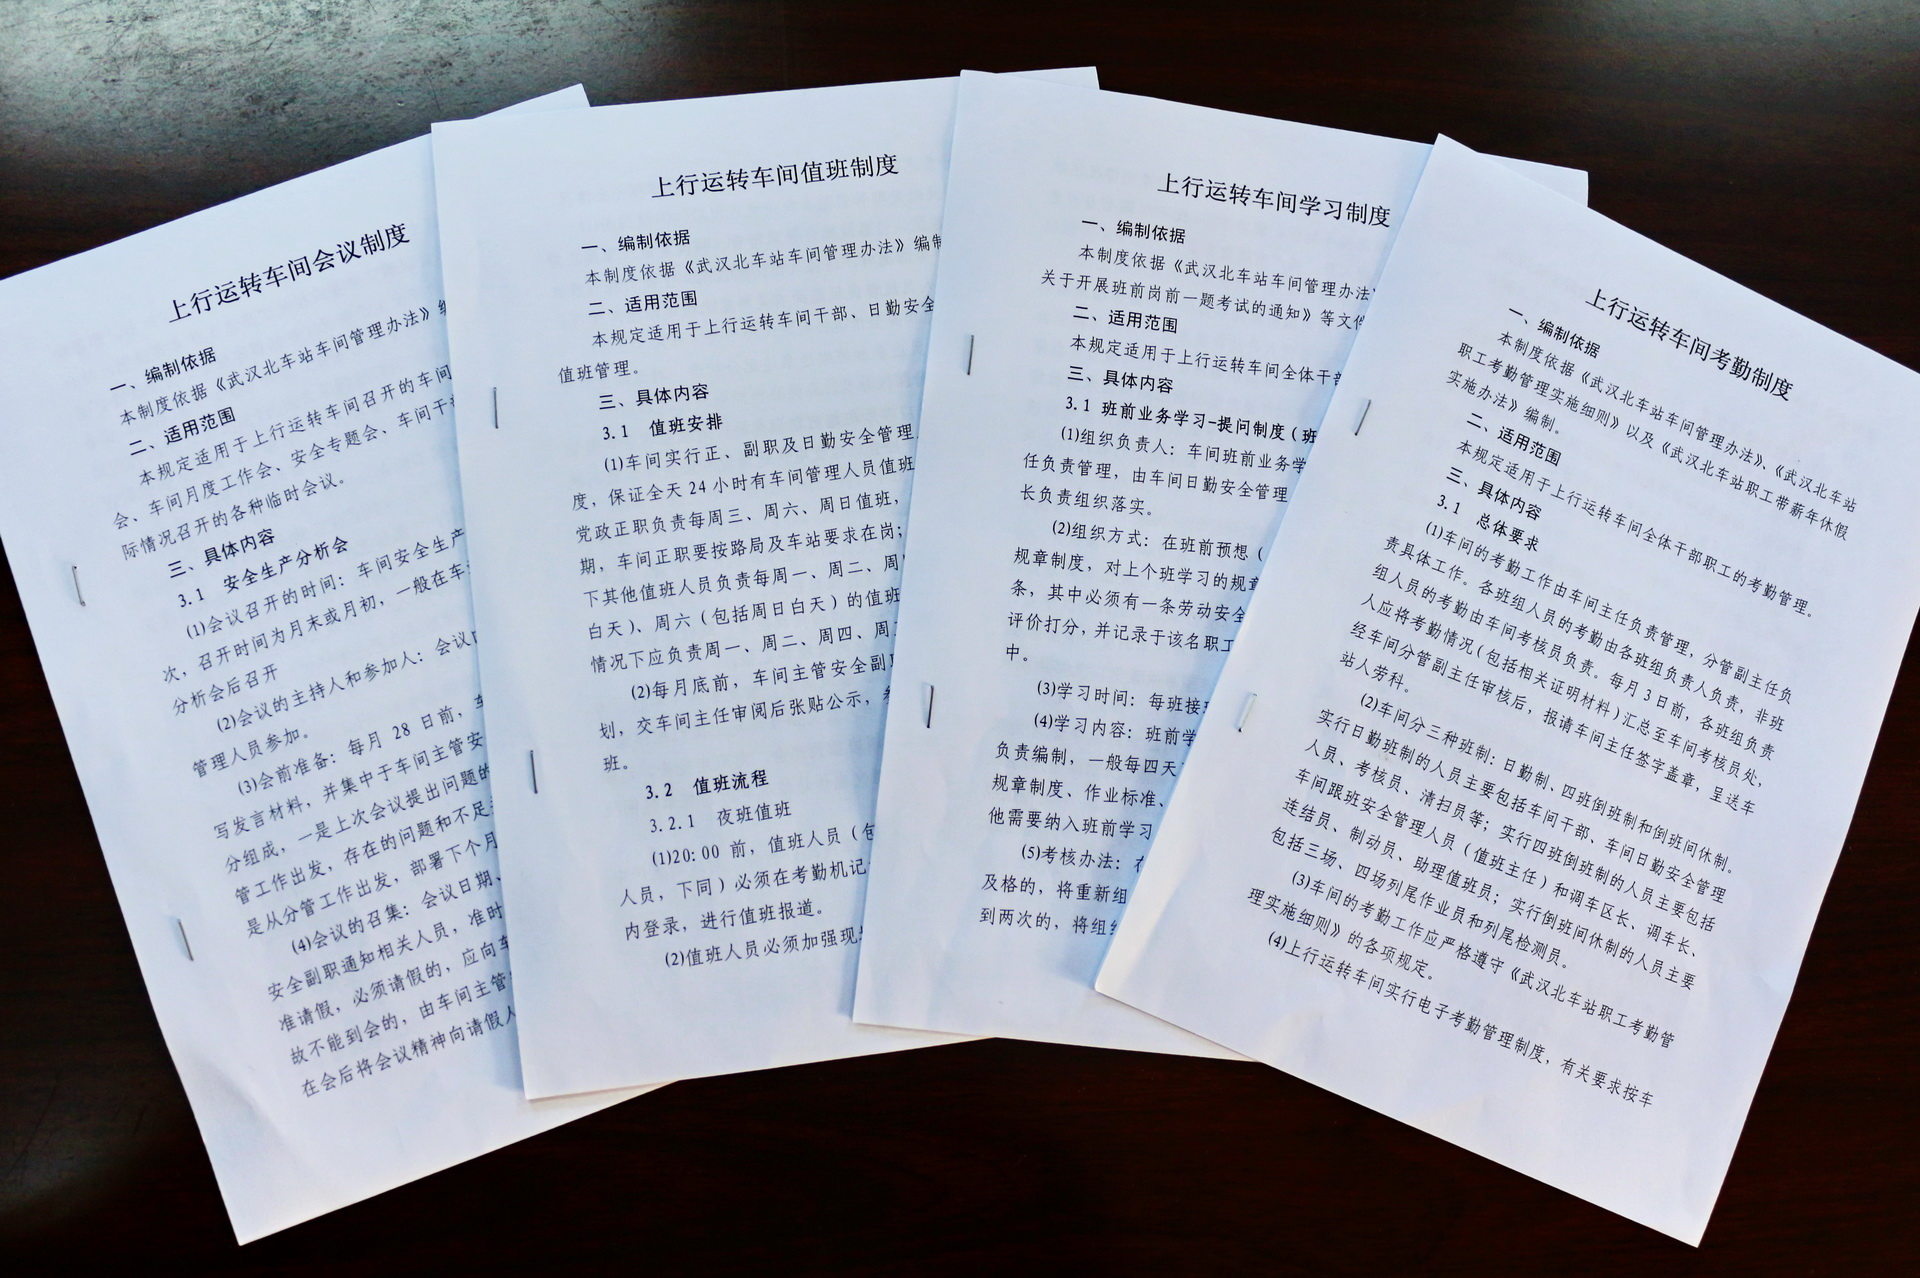 上行运转车间会议制度
一、编制依据
本制度依据《武汉北车站车间管理办法》编
二、适用范围
本规定适用于上行运转车间召开的车间
会、车间月度工作会、安全专题会、车间干部
际情况召开的各种临时会议。
三、具体内容
3.1 安全生产分析会
(1)会议召开的时间：车间安全生产
次，召开时间为月末或月初，一般在车
分析会后召开
(2)会议的主持人和参加人：会议
管理人员参加。
(3)会前准备：每月 28 日前，车
写发言材料，并集中于车间主管安
分组成，一是上次会议提出问题的
管工作出发，存在的问题和不足
是从分管工作出发，部署下个月
(4)会议的召集：会议日期、
安全副职通知相关人员，准时
准请假，必须请假的，应向车
故不能到会的，由车间主管
在会后将会议精神向请假人
上行运转车间值班制度
一、编制依据
本制度依据《武汉北车站车间管理办法》编制
二、适用范围
本规定适用于上行运转车间干部、日勤安全
值班管理。
三、具体内容
3.1 值班安排
(1)车间实行正、副职及日勤安全管理
度，保证全天 24 小时有车间管理人员值班
党政正职负责每周三、周六、周日值班，
期，车间正职要按路局及车站要求在岗；
下其他值班人员负责每周一、周二、周
白天)、周六（包括周日白天）的值班
情况下应负责周一、周二、周四、周
(2)每月底前，车间主管安全副职
划，交车间主任审阅后张贴公示，
班。
3.2 值班流程
3.2.1 夜班值班
(1)20:00 前，值班人员（包
人员，下同）必须在考勤机记
内登录，进行值班报道。
(2)值班人员必须加强现
上行运转车间学习制度
一、编制依据
本制度依据《武汉北车站车间管理办法》
关于开展班前岗前一题考试的通知》等文件
二、适用范围
本规定适用于上行运转车间全体干部
三、具体内容
3.1 班前业务学习-提问制度（班
(1)组织负责人：车间班前业务学
任负责管理，由车间日勤安全管理
长负责组织落实。
(2)组织方式：在班前预想（
规章制度，对上个班学习的规章
条，其中必须有一条劳动安全
评价打分，并记录于该名职工
中。
(3)学习时间：每班接班
(4)学习内容：班前学
负责编制，一般每四天
规章制度、作业标准、
他需要纳入班前学习
(5)考核办法：在
及格的，将重新组
到两次的，将组织
上行运转车间考勤制度
一、编制依据
本制度依据《武汉北车站车间管理办法》、《武汉北车站
职工考勤管理实施细则》以及《武汉北车站职工带薪年休假
实施办法》编制。
二、适用范围
本规定适用于上行运转车间全体干部职工的考勤管理。
三、具体内容
3.1 总体要求
(1)车间的考勤工作由车间主任负责管理，分管副主任负
责具体工作。各班组人员的考勤由各班组负责人负责，非班
组人员的考勤由车间考核员负责。每月 3 日前，各班组负责
人应将考勤情况(包括相关证明材料)汇总至车间考核员处，
经车间分管副主任审核后，报请车间主任签字盖章，呈送车
站人劳科。
(2)车间分三种班制：日勤制、四班倒班制和倒班间休制。
实行日勤班制的人员主要包括车间干部、车间日勤安全管理
人员、考核员、清扫员等；实行四班倒班制的人员主要包括
车间跟班安全管理人员（值班主任）和调车区长、调车长、
连结员、制动员、助理值班员；实行倒班间休制的人员主要
包括三场、四场列尾作业员和列尾检测员。
(3)车间的考勤工作应严格遵守《武汉北车站职工考勤管
理实施细则》的各项规定。
(4)上行运转车间实行电子考勤管理制度，有关要求按车